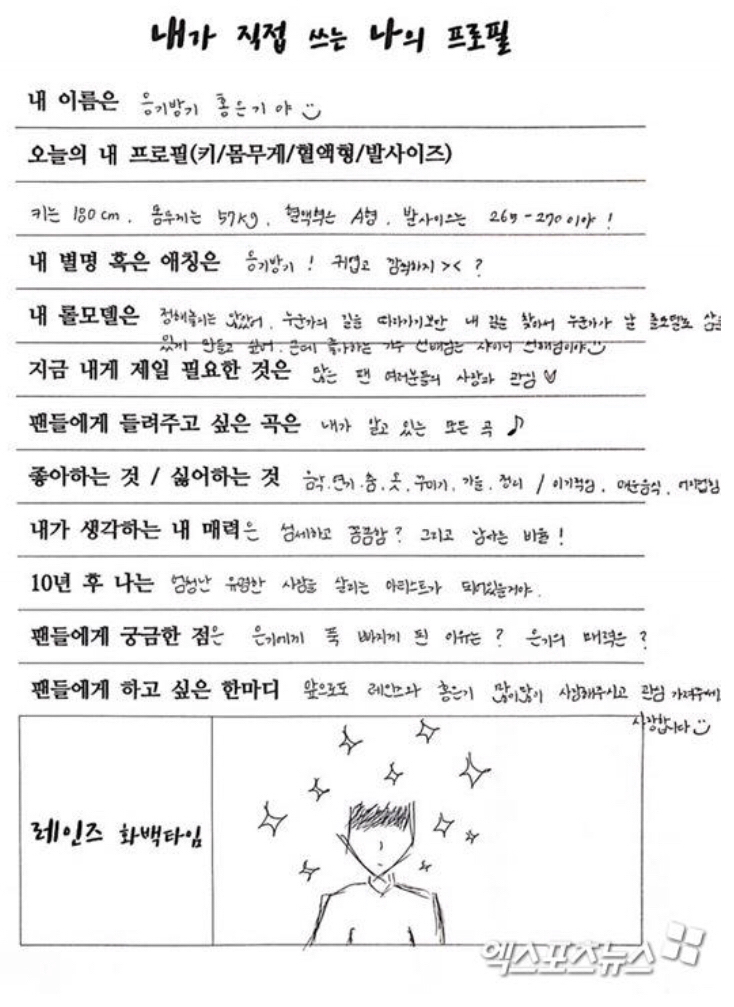 내가 직접 쓰는 나의 프로필
내 이름은 응기방기 홍은기야
오늘의 내 프로필(키/몸무게/혈액형/발사이즈)
키는 180cm. 몸무게는 57kg. 혈액형은 A형. 발사이즈는 265-270이야!
내 별명 혹은 애칭은 응기방기! 귀엽고 깜찍하지 >< ?
내 롤모델은 정해놓지는 않았어. 누군가의 길을 따라가기보단 내 길을 찾아서 누군가가 날 롤모델로 삼을
있게 만들고 싶어. 근데 좋아하는 가수 선배님은 샤이니 선배님이야
지금 내게 제일 필요한 것은 많은 팬 여러분들의 사랑과 관심 ♥
팬들에게 들려주고 싶은 곡은 내가 알고 있는 모든 곡 ♪
좋아하는 것 / 싫어하는 것 음악.연기.춤.옷.꾸미기.가을. / 이기적임. 매운음식.
내가 생각하는 내 매력은 섬세하고 꼼꼼함? 그리고 남다른 비율!
10년 후 나는 엄청난 유명한 사람을 살리는 아티스트가 되어있을거야.
팬들에게 궁금한 점은 은기에게 푹 빠지게 된 이유는? 은기의 매력은?
팬들에게 하고 싶은 한마디 앞으로도 레인즈와 홍은기 많이많이 사랑해주시고 관심 가져주세요
사랑합니다
레인즈 화백타임
엑스포츠뉴스